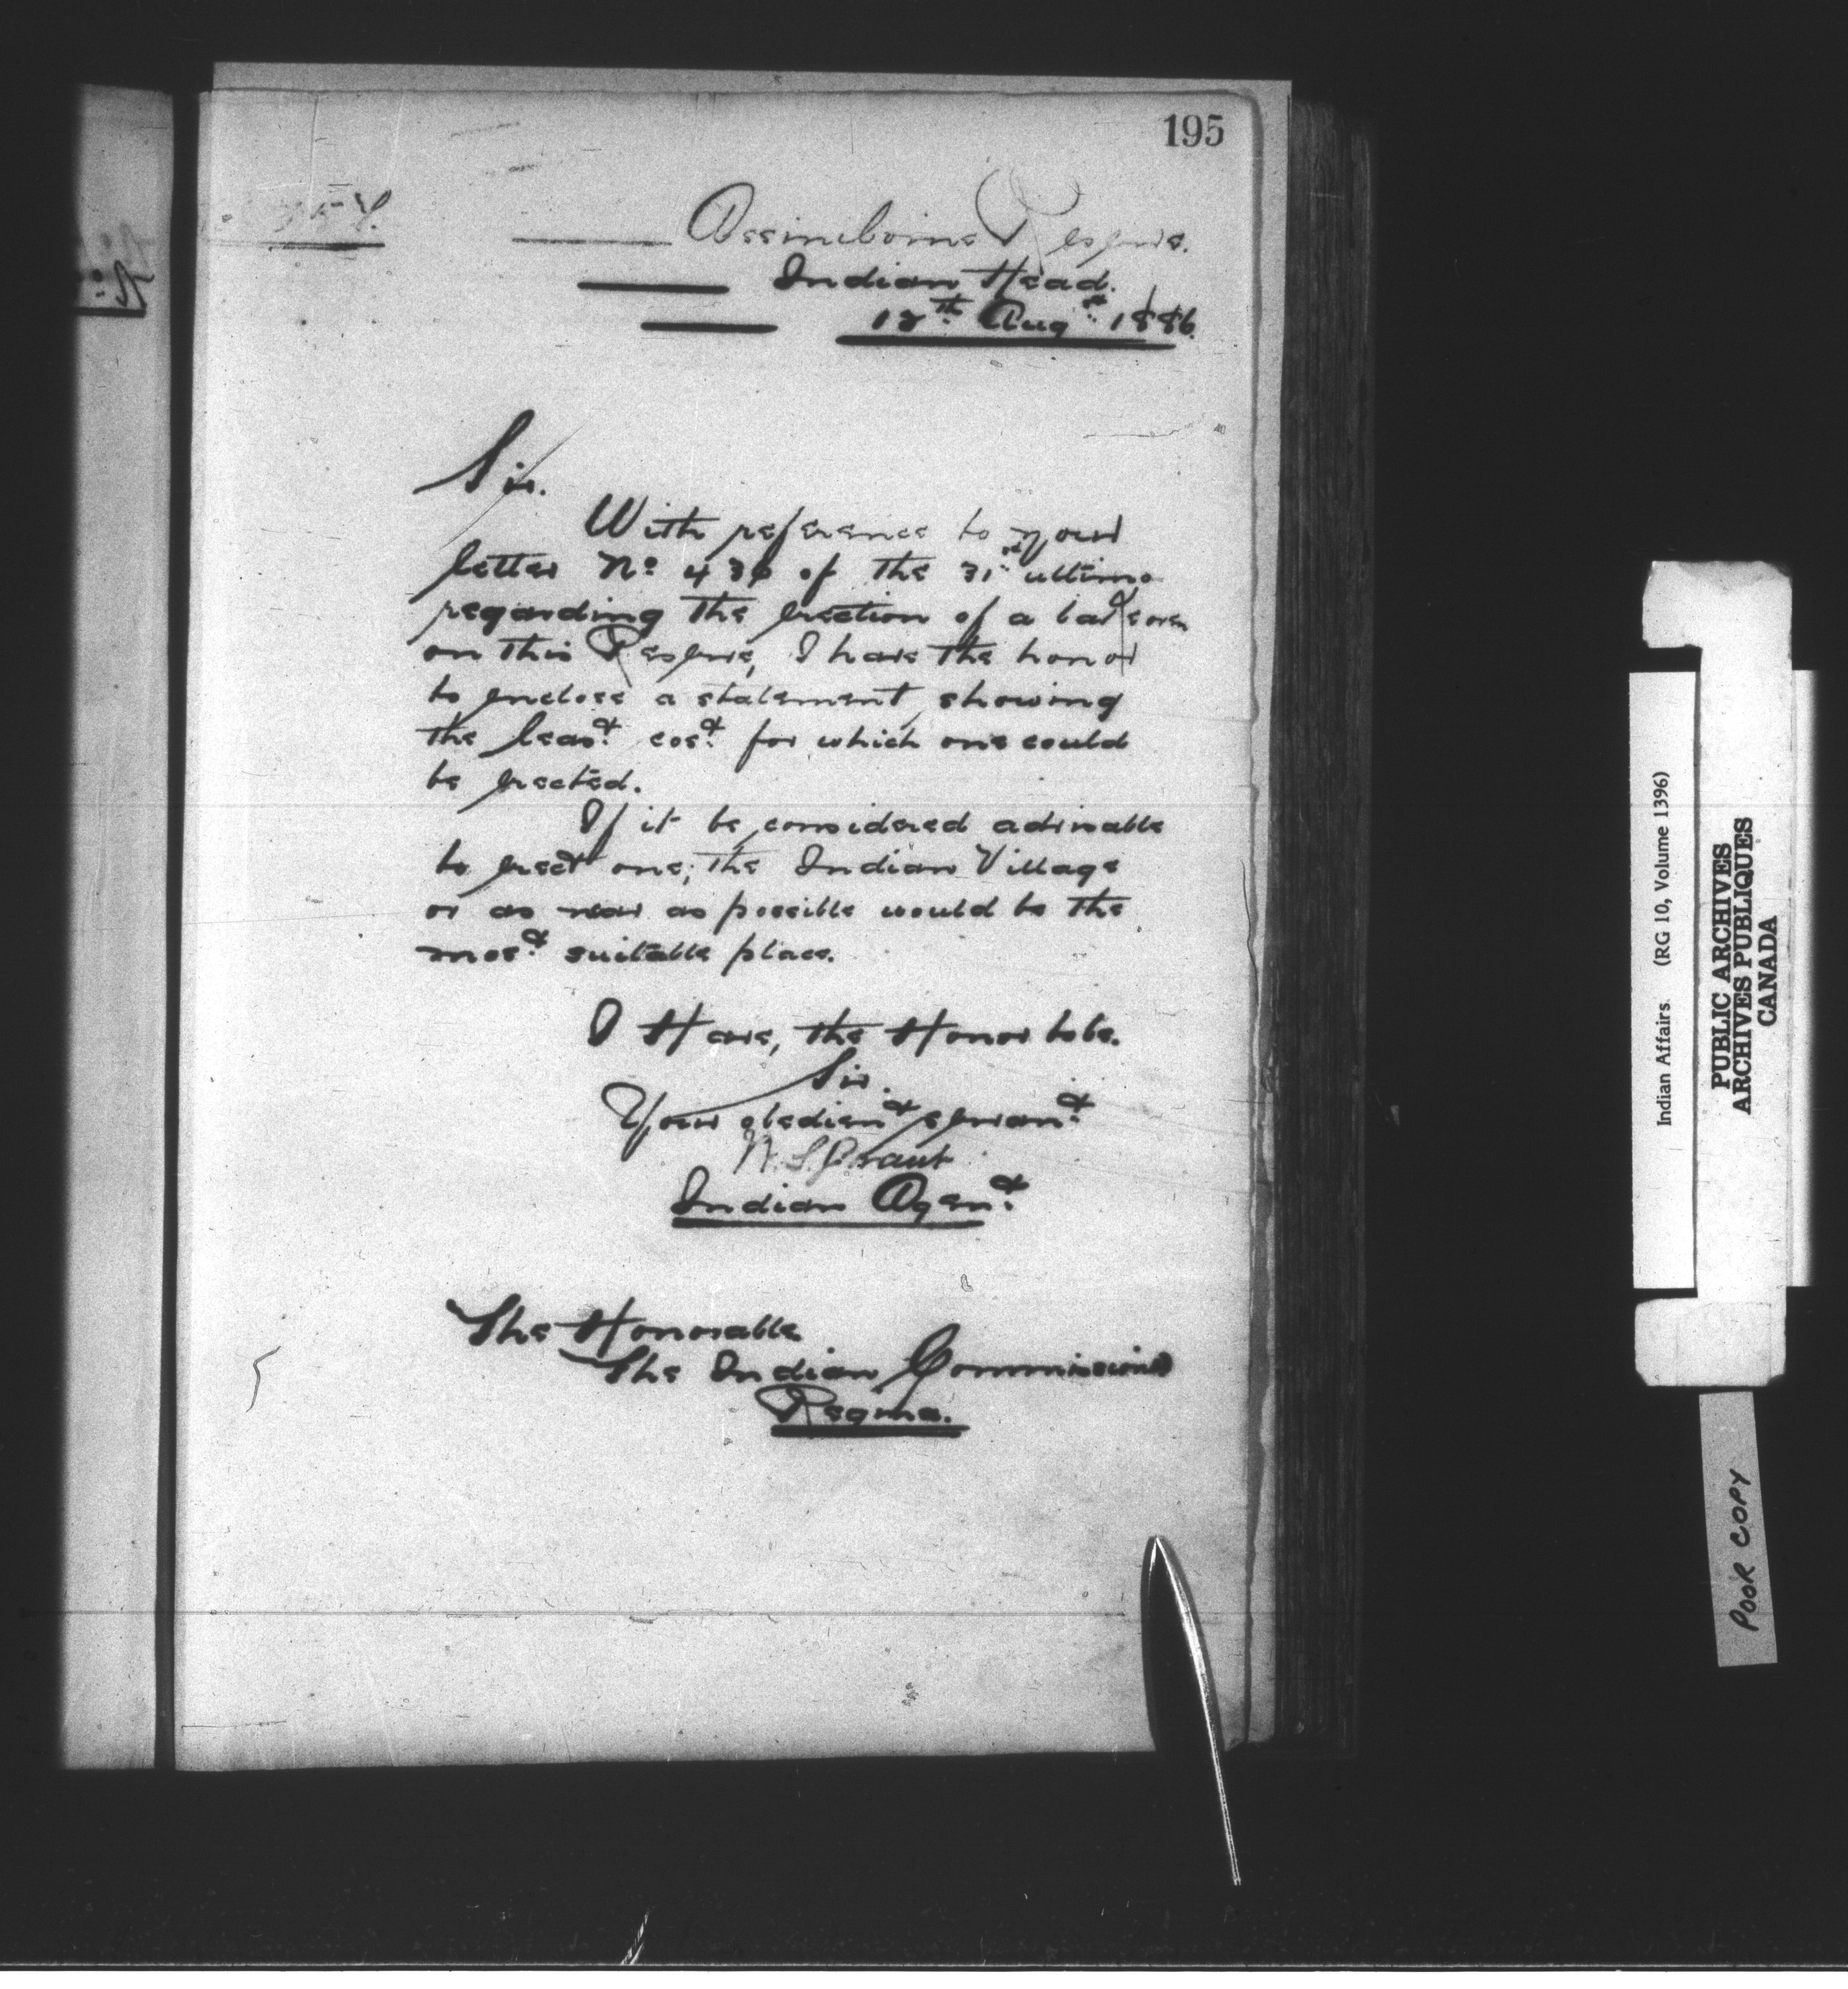 195
Assineboine Reserve.
Indian Head.
Augst 1886.
Sir.
With reference to your
letter No of the 31st ultimo
regarding the erection of a bake oven
on this Reserve, I have the honor
to enclose a statement, showing
the least cost for which one could
be erected.
If it be considered advisable
to erect one; the Indian Village
or as near as possible would be the
most suitable place.
I Have, the Honor to be.
Sir.
Your obedient servant
W. S. Grant
Indian Agent
The Honorable
The Indian Commissioner
Regina.
Indian Affairs. (RG 10, Volume 1396)
PUBLIC ARCHIVES
ARCHIVES PUBLIQUES
CANADA
POOR COPY